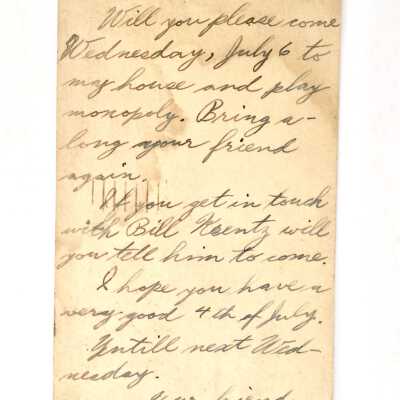 Will you please come
Wednesday, July 6 to
my house and play
monopoly. Bring a-
long your friend
again.
If you get in touch
with Bill Krentz will
you tell him to come.
I hope you have a
very good 4th of July.
Yntill next Wed-
nesday.
Your friend